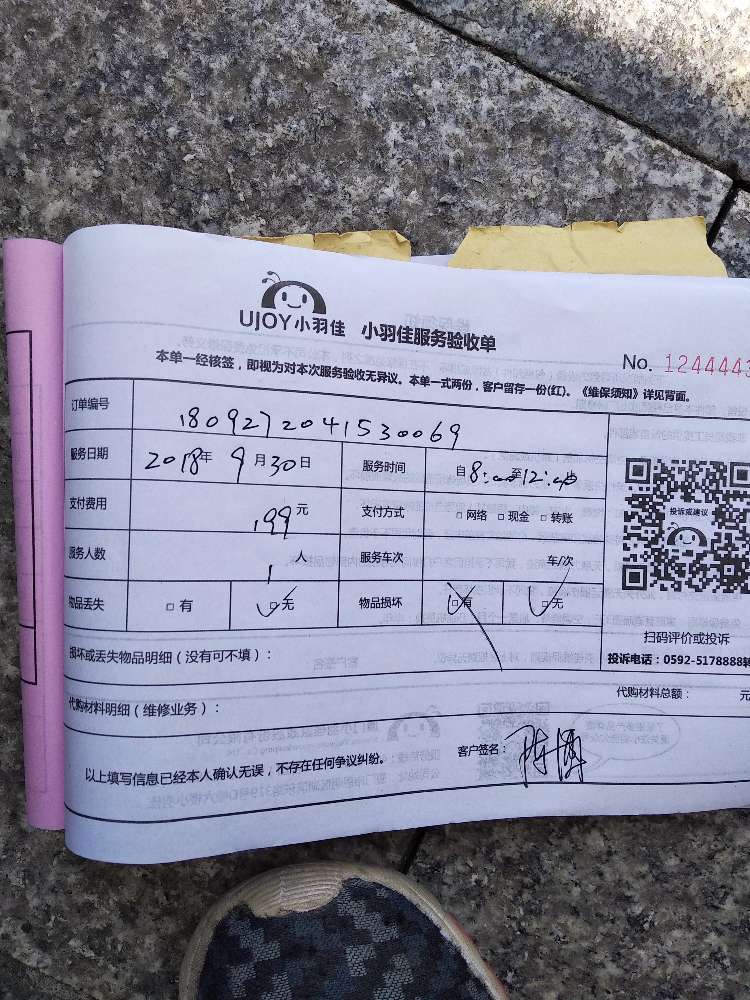 UJOY小羽佳 小羽佳服务验收单
No. 1244443
本单一经核签，即视为对本次服务验收无异议。本单一式两份，客户留存一份(红)。《维保须知》详见背面。
订单编号 180927204153030069
服务日期 2018年 9月30日 服务时间 自8:00至12:00
支付费用 199元 支付方式 □网络 □现金 □转账
服务人数 1人 服务车次 车/次
物品丢失 □有 □无 物品损坏 □有 □无
投诉或建议
扫码评价或投诉
投诉电话：0592-5178888转
损坏或丢失物品明细（没有可不填）：
代购材料明细（维修业务）： 代购材料总额： 元
以上填写信息已经本人确认无误，不存在任何争议纠纷。 客户签名：